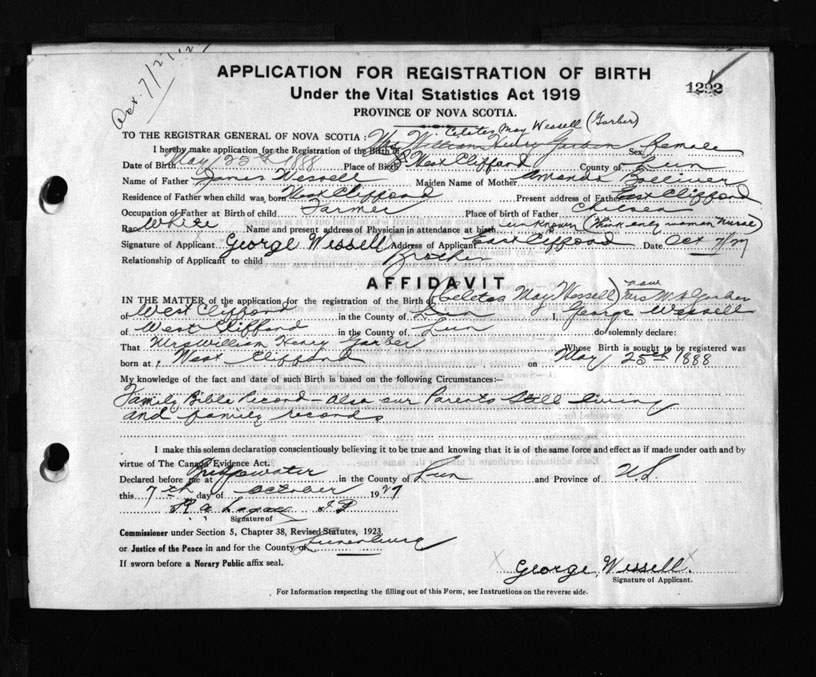 Oct. 7/27
APPLICATION FOR REGISTRATION OF BIRTH
1292
Under the Vital Statistics Act 1919
PROVINCE OF NOVA SCOTIA.
Celetas May Wessell (Garber)
TO THE REGISTRAR GENERAL OF NOVA SCOTIA:
I hereby make application for the Registration of the Birth of Mrs William Henry Garber Sex female
Date of Birth May 25th 1888 Place of Birth West Clifford County of Lun
Name of Father James Wessell Maiden Name of Mother Amanda Bolliver
Residence of Father when child was born West Clifford Present address of Father East Clifford
Occupation of Father at Birth of child Farmer Place of birth of Father Chelsea
Race White Name and present address of Physician in attendance at birth unknown (Think only woman nurse)
Signature of Applicant George Wessell Address of Applicant East Clifford Date Oct 7/27
Relationship of Applicant to child Brother
AFFIDAVIT
IN THE MATTER of the application for the registration of the Birth of (Celetas May Wessell) now Mrs W H Garber
of West Clifford in the County of Lun I, George Wessell
of West Clifford in the County of Lun do solemnly declare:
That Mrs William Henry Garber —Whose Birth is sought to be registered was
born at West Clifford on May 25th 1888
My knowledge of the fact and date of such Birth is based on the following Circumstances:—
Family Bible Record – Also our Parents still living
and family records
I make this solemn declaration conscientiously believing it to be true and knowing that it is of the same force and effect as if made under oath and by
virtue of The Canada Evidence Act.
Declared before me at Bridgewater in the County of Lun and Province of NS
this 7th day of October 1927
R A J P
Signature of
Commissioner under Section 5, Chapter 38, Revised Statutes, 1923
or Justice of the Peace in and for the County of Lunenburg
If sworn before a Norary Public affix seal.
X George Wessell X
Signature of Applicant.
For Information respecting the filling out of this Form, see Instructions on the reverse side.